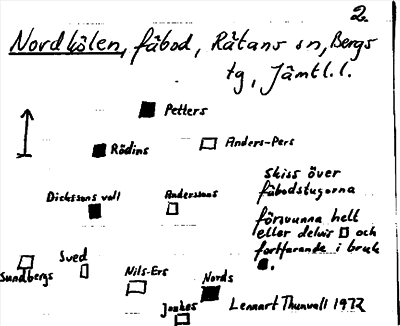 2.
Nordkölen, fäbod, Rätans sn, Bergs
tg, Jämtl. l.
Petters
Rödins
Anders-Pers
Skiss över
fäbodstugorna
Dickssons vall
Anderssons
försvunna helt
eller delvis □ och
fortfarande i bruk
■.
Sundbergs
Sved
Nils-Ers
Nords
Jonkes
Lennart Thunvall 1972